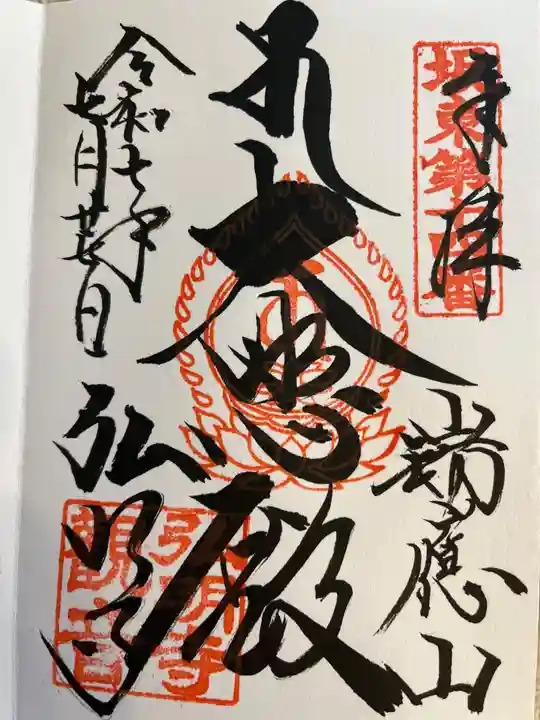 奉拝
坂東第十四番
瑞應山
大悲殿
令和七年
七月廿七日
弘明寺
弘明寺
観音